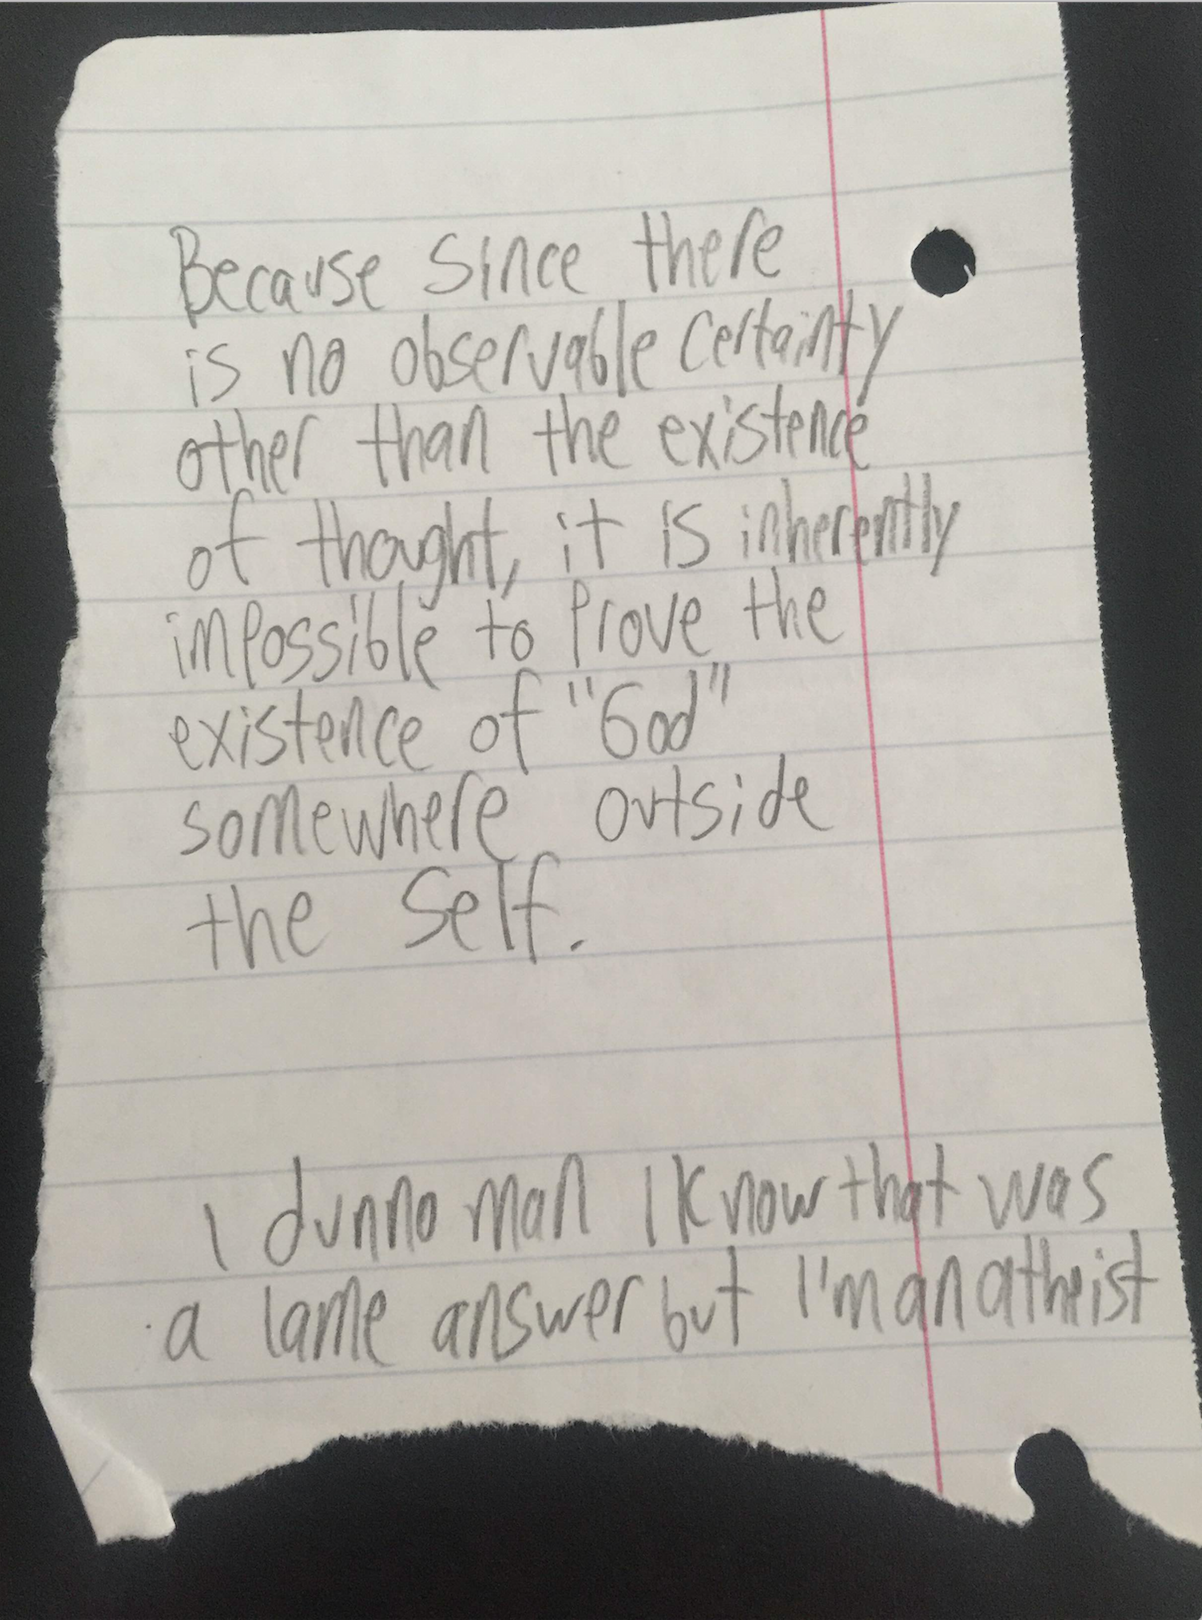 Because since there
is no observable certainty
other than the existence
of thought, it is inherently
impossible to prove the
existence of "God"
somewhere outside
the self.
I dunno man I know that was
a lame answer but I'm an atheist